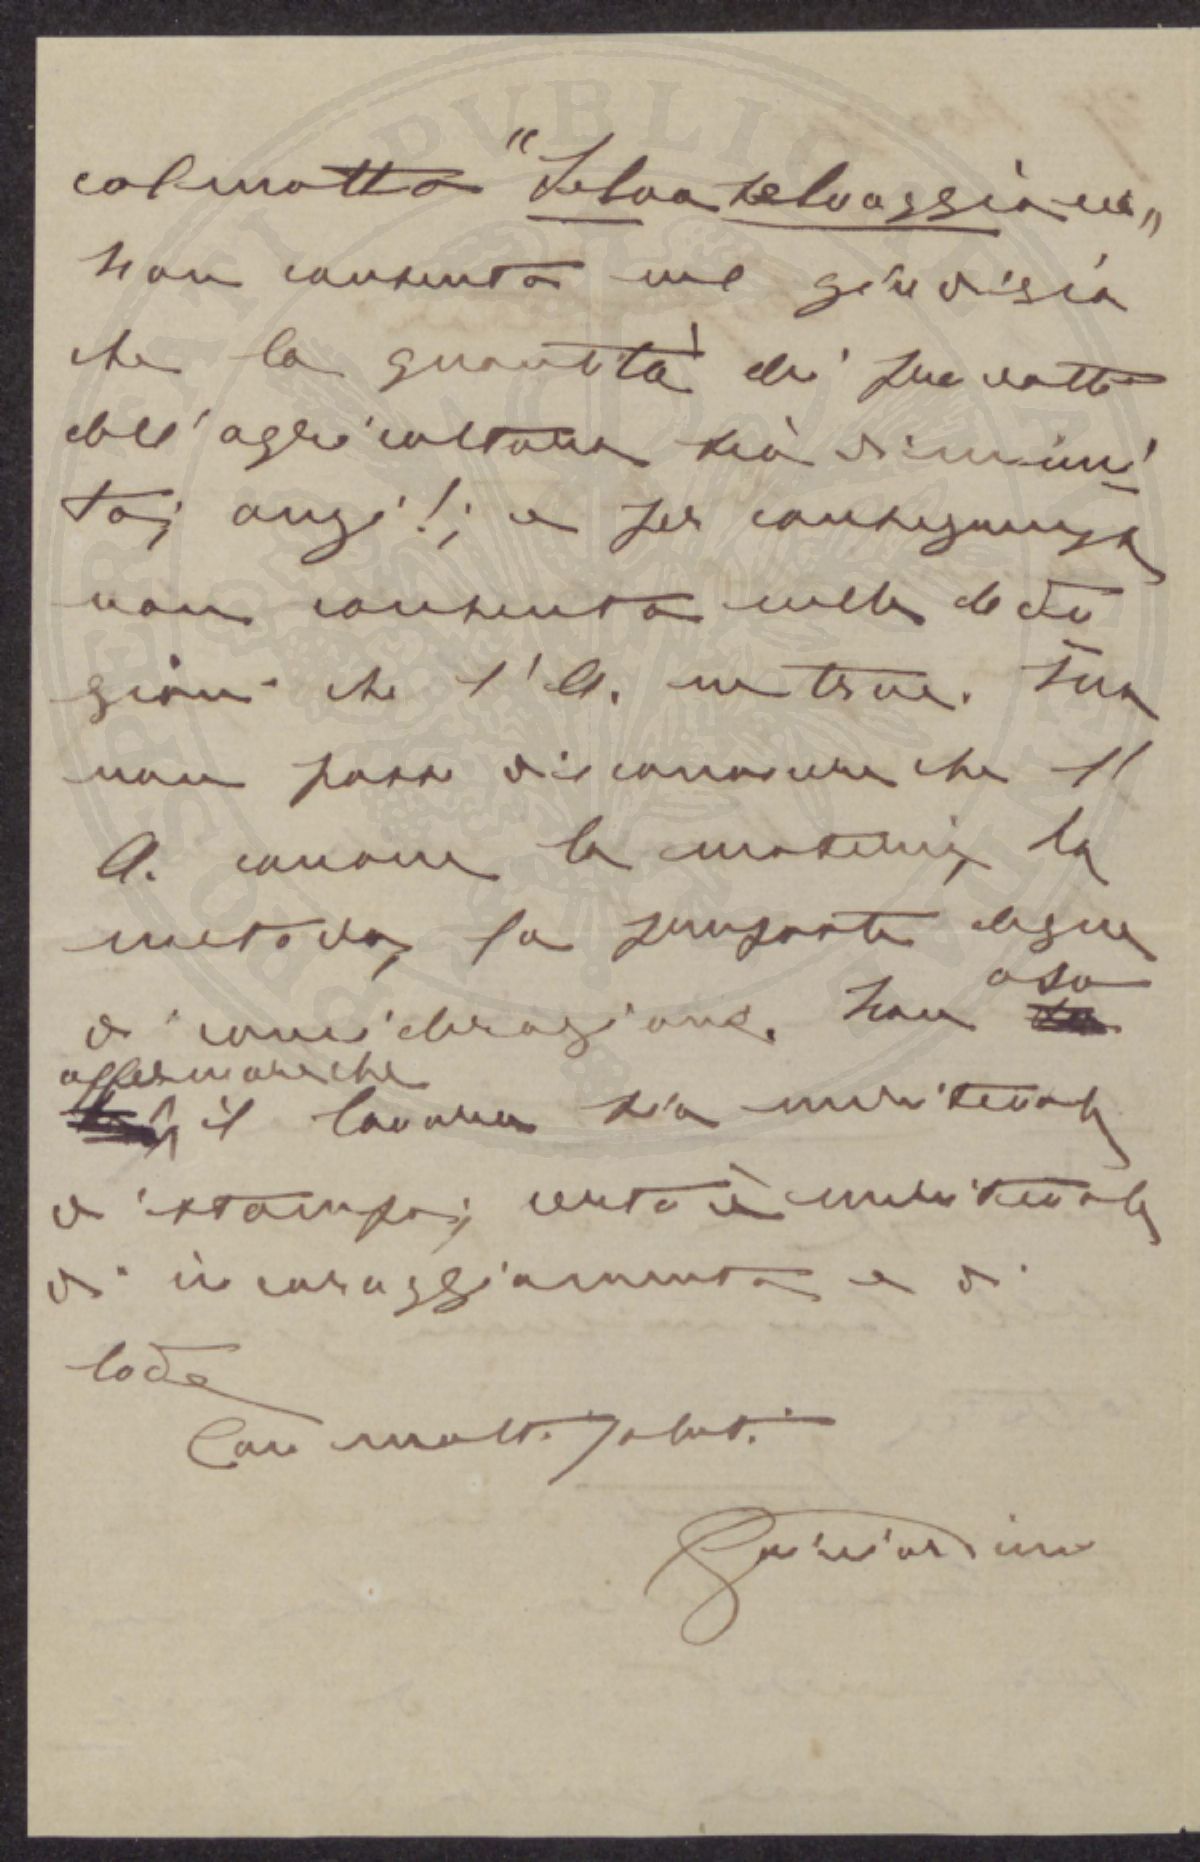 col motto "Selva selvaggia ecc„
Non consento nel giudizio
che la quantità dei prodotti
dell'agricoltura sia diminui
ta; anzi!; e per conseguenza
non consento nelle dedu
zioni che l'A. ne trae. Ma
non posso disconoscere che l'
A. conosce la materia, ha
metodo, fa proposte degne
di considerazione. Non oso
affermare che
il lavoro sia meritevole
di stampa; certo è meritevole
di incoraggiamento e di
lode
Con molti saluti
Guicciardini